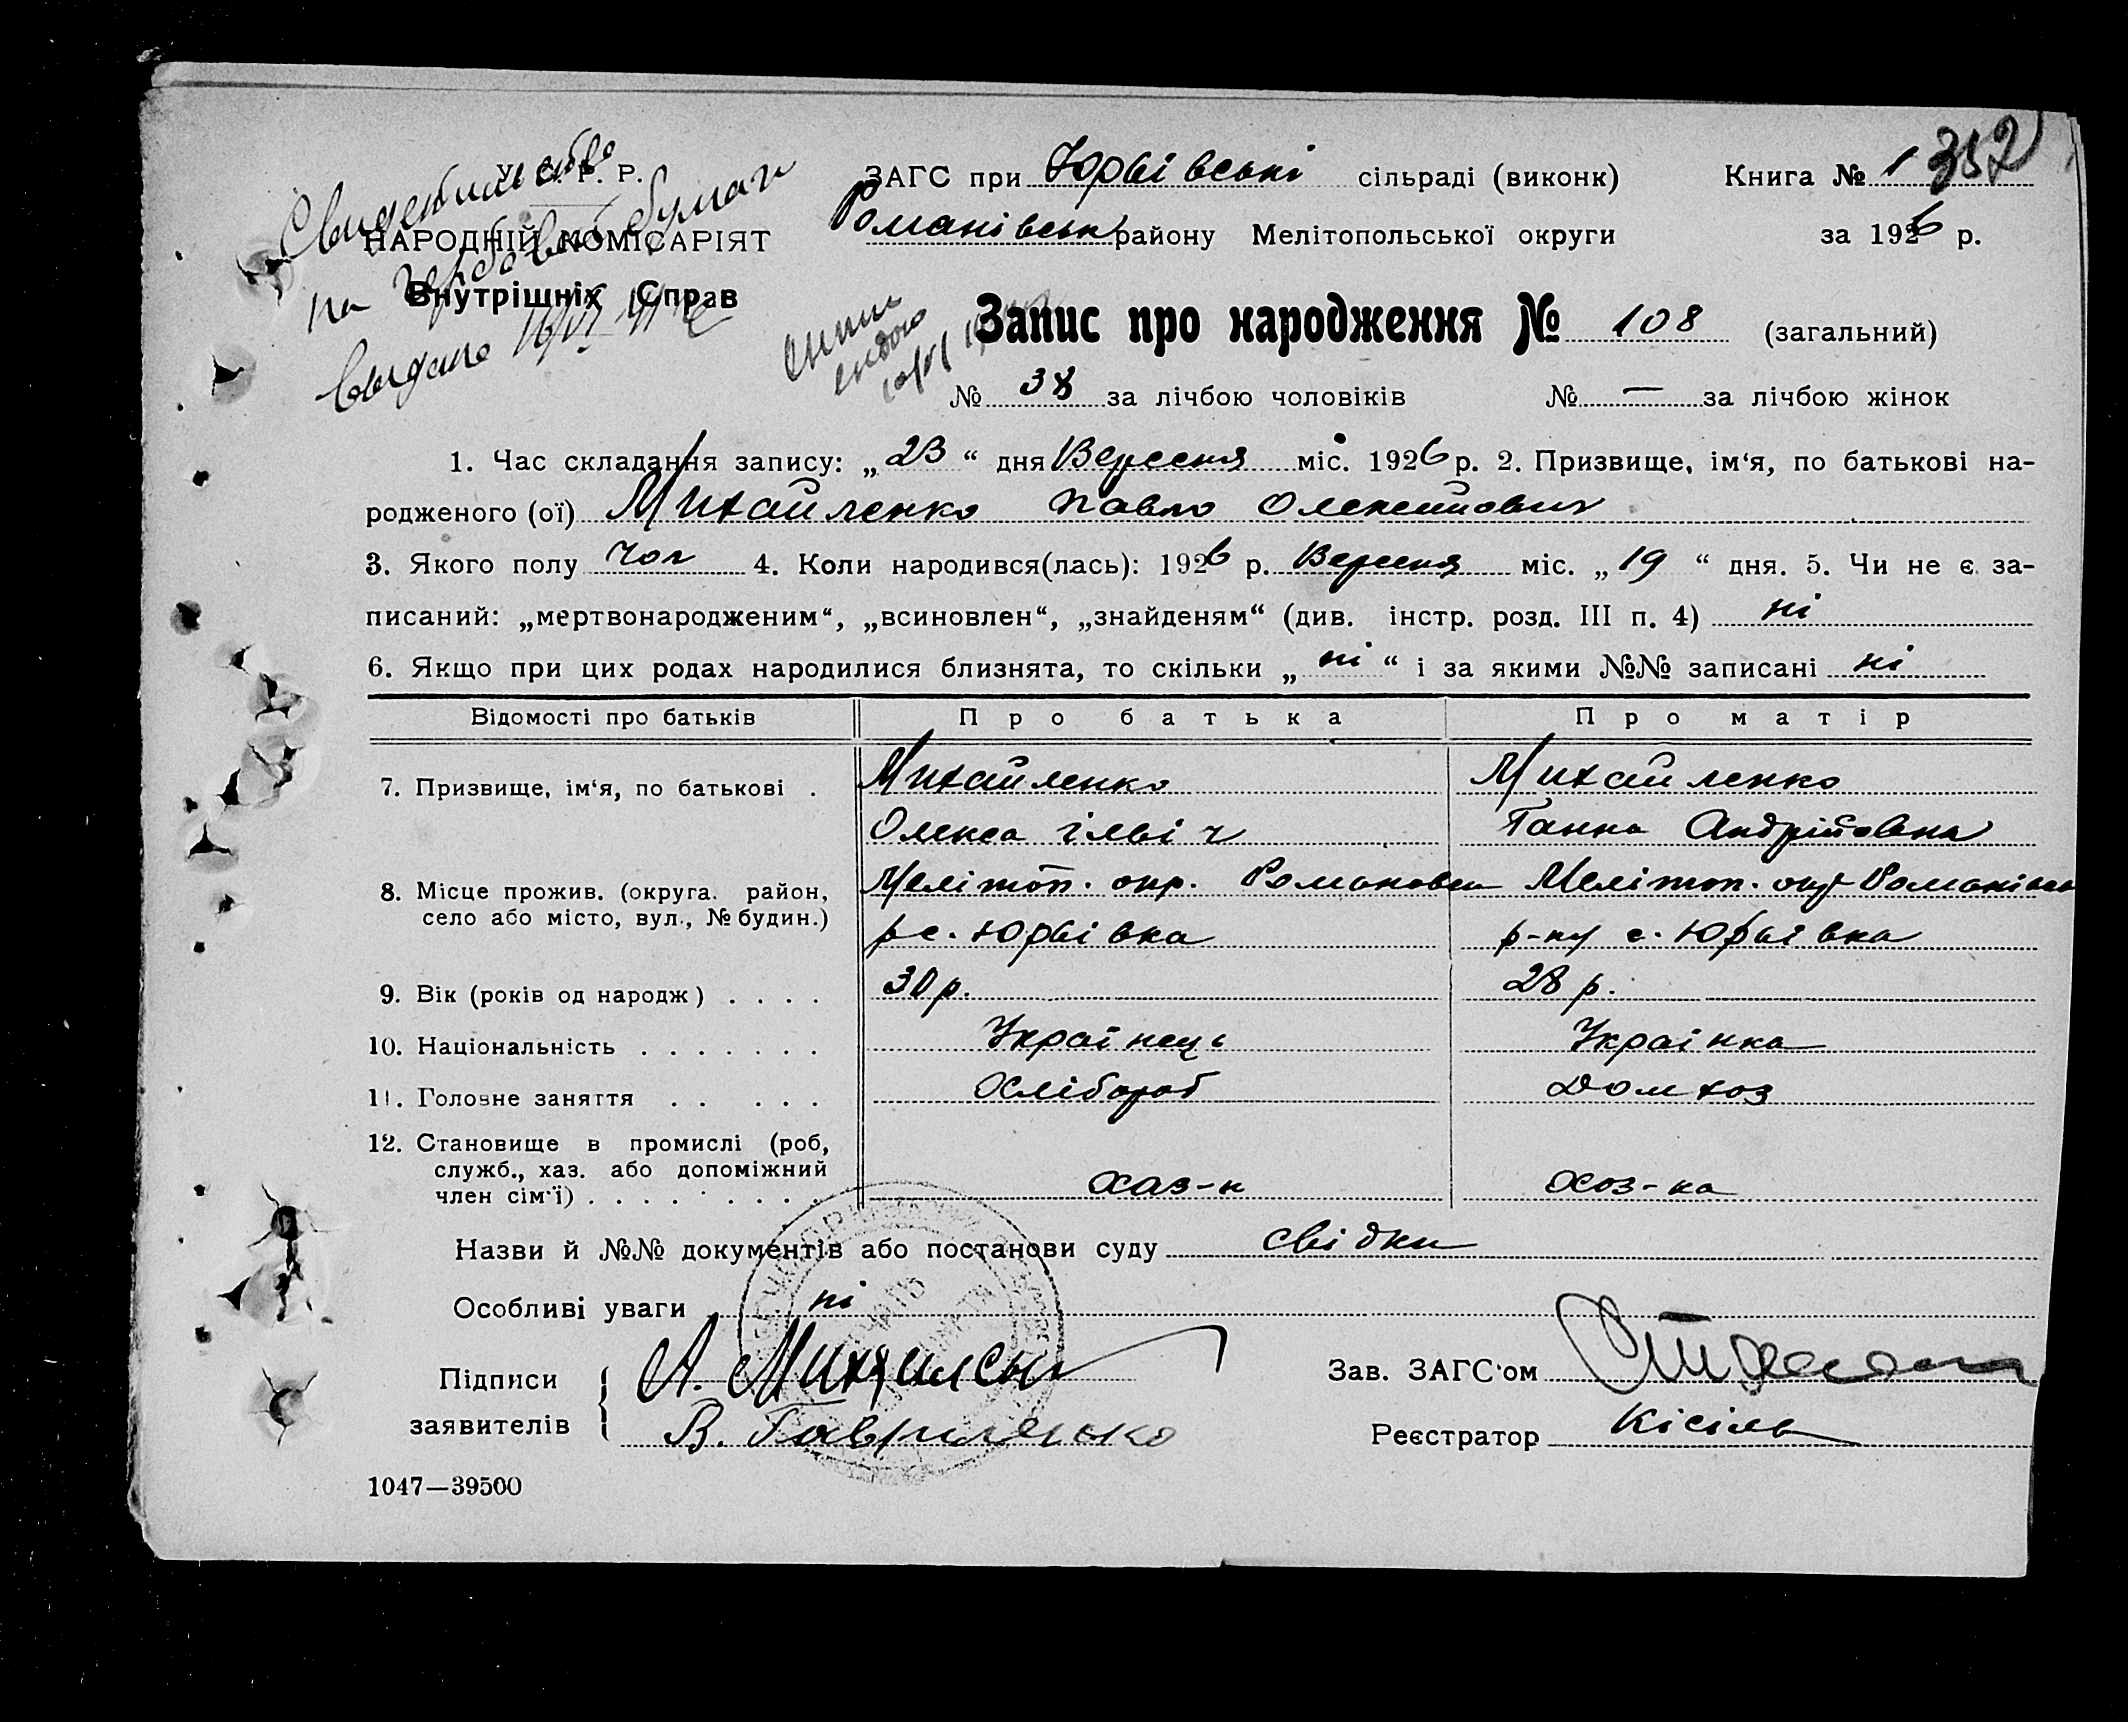 Свидетильство
на гербовой бумаги
выдано
У. С. Р. Р.
НАРОДНІЙ КОМІСАРІЯТ
Внутрішніх Справ
ЗАГС при Юрьівські сільраді (виконк) Книга № 1 352
Романівськ району Мелітопольської округи за 1926 р.
Запис про народження № 108 (загальний)
№ 38 за лічбою чоловіків № — за лічбою жінок
1. Час складання запису: „23“ дня Вересня міс. 1926 р. 2. Призвище, ім‘я, по батькові на-
родженого (ої) Михайленко Павло Олексійович
3. Якого полу чол 4. Коли народився(лась): 1926 р. Вересня міс. „19“ дня. 5. Чи не є за-
писаний: „мертвонародженим“, „всиновлен“, „знайденям“ (див. інстр. розд. III п. 4) ні
6. Якщо при цих родах народилися близнята, то скільки „ні“ і за якими №№ записані ні
Відомості про батьків Про батька Про матір
7. Призвище, ім‘я, по батькові . Михайленко Михайленко
Олекса ілвіч Ганна Андрійовна
8. Місце прожив. (округа. район, Мелітоп. окр. Романовск Мелітоп. окр Романівск
село або місто, вул., № будин.) р с. Юрьівка р-ну с. Юрьівка
9. Вік (років од народж) . . . . 30 р. 28 р.
10. Національність . . . . . . . Українець Українка
11. Головне заняття . . . . . Хлібороб Домхоз
12. Становище в промислі (роб,
служб., хаз. або допоміжний
член сім‘ї) . . . . . . . . . хаз-н хоз-ка
Назви й №№ документів або постанови суду свідки
Особливі уваги ні
Підписи А. Зав. ЗАГС‘ом
заявителів В. Гавриленько Реєстратор Кісіль
1047—39500